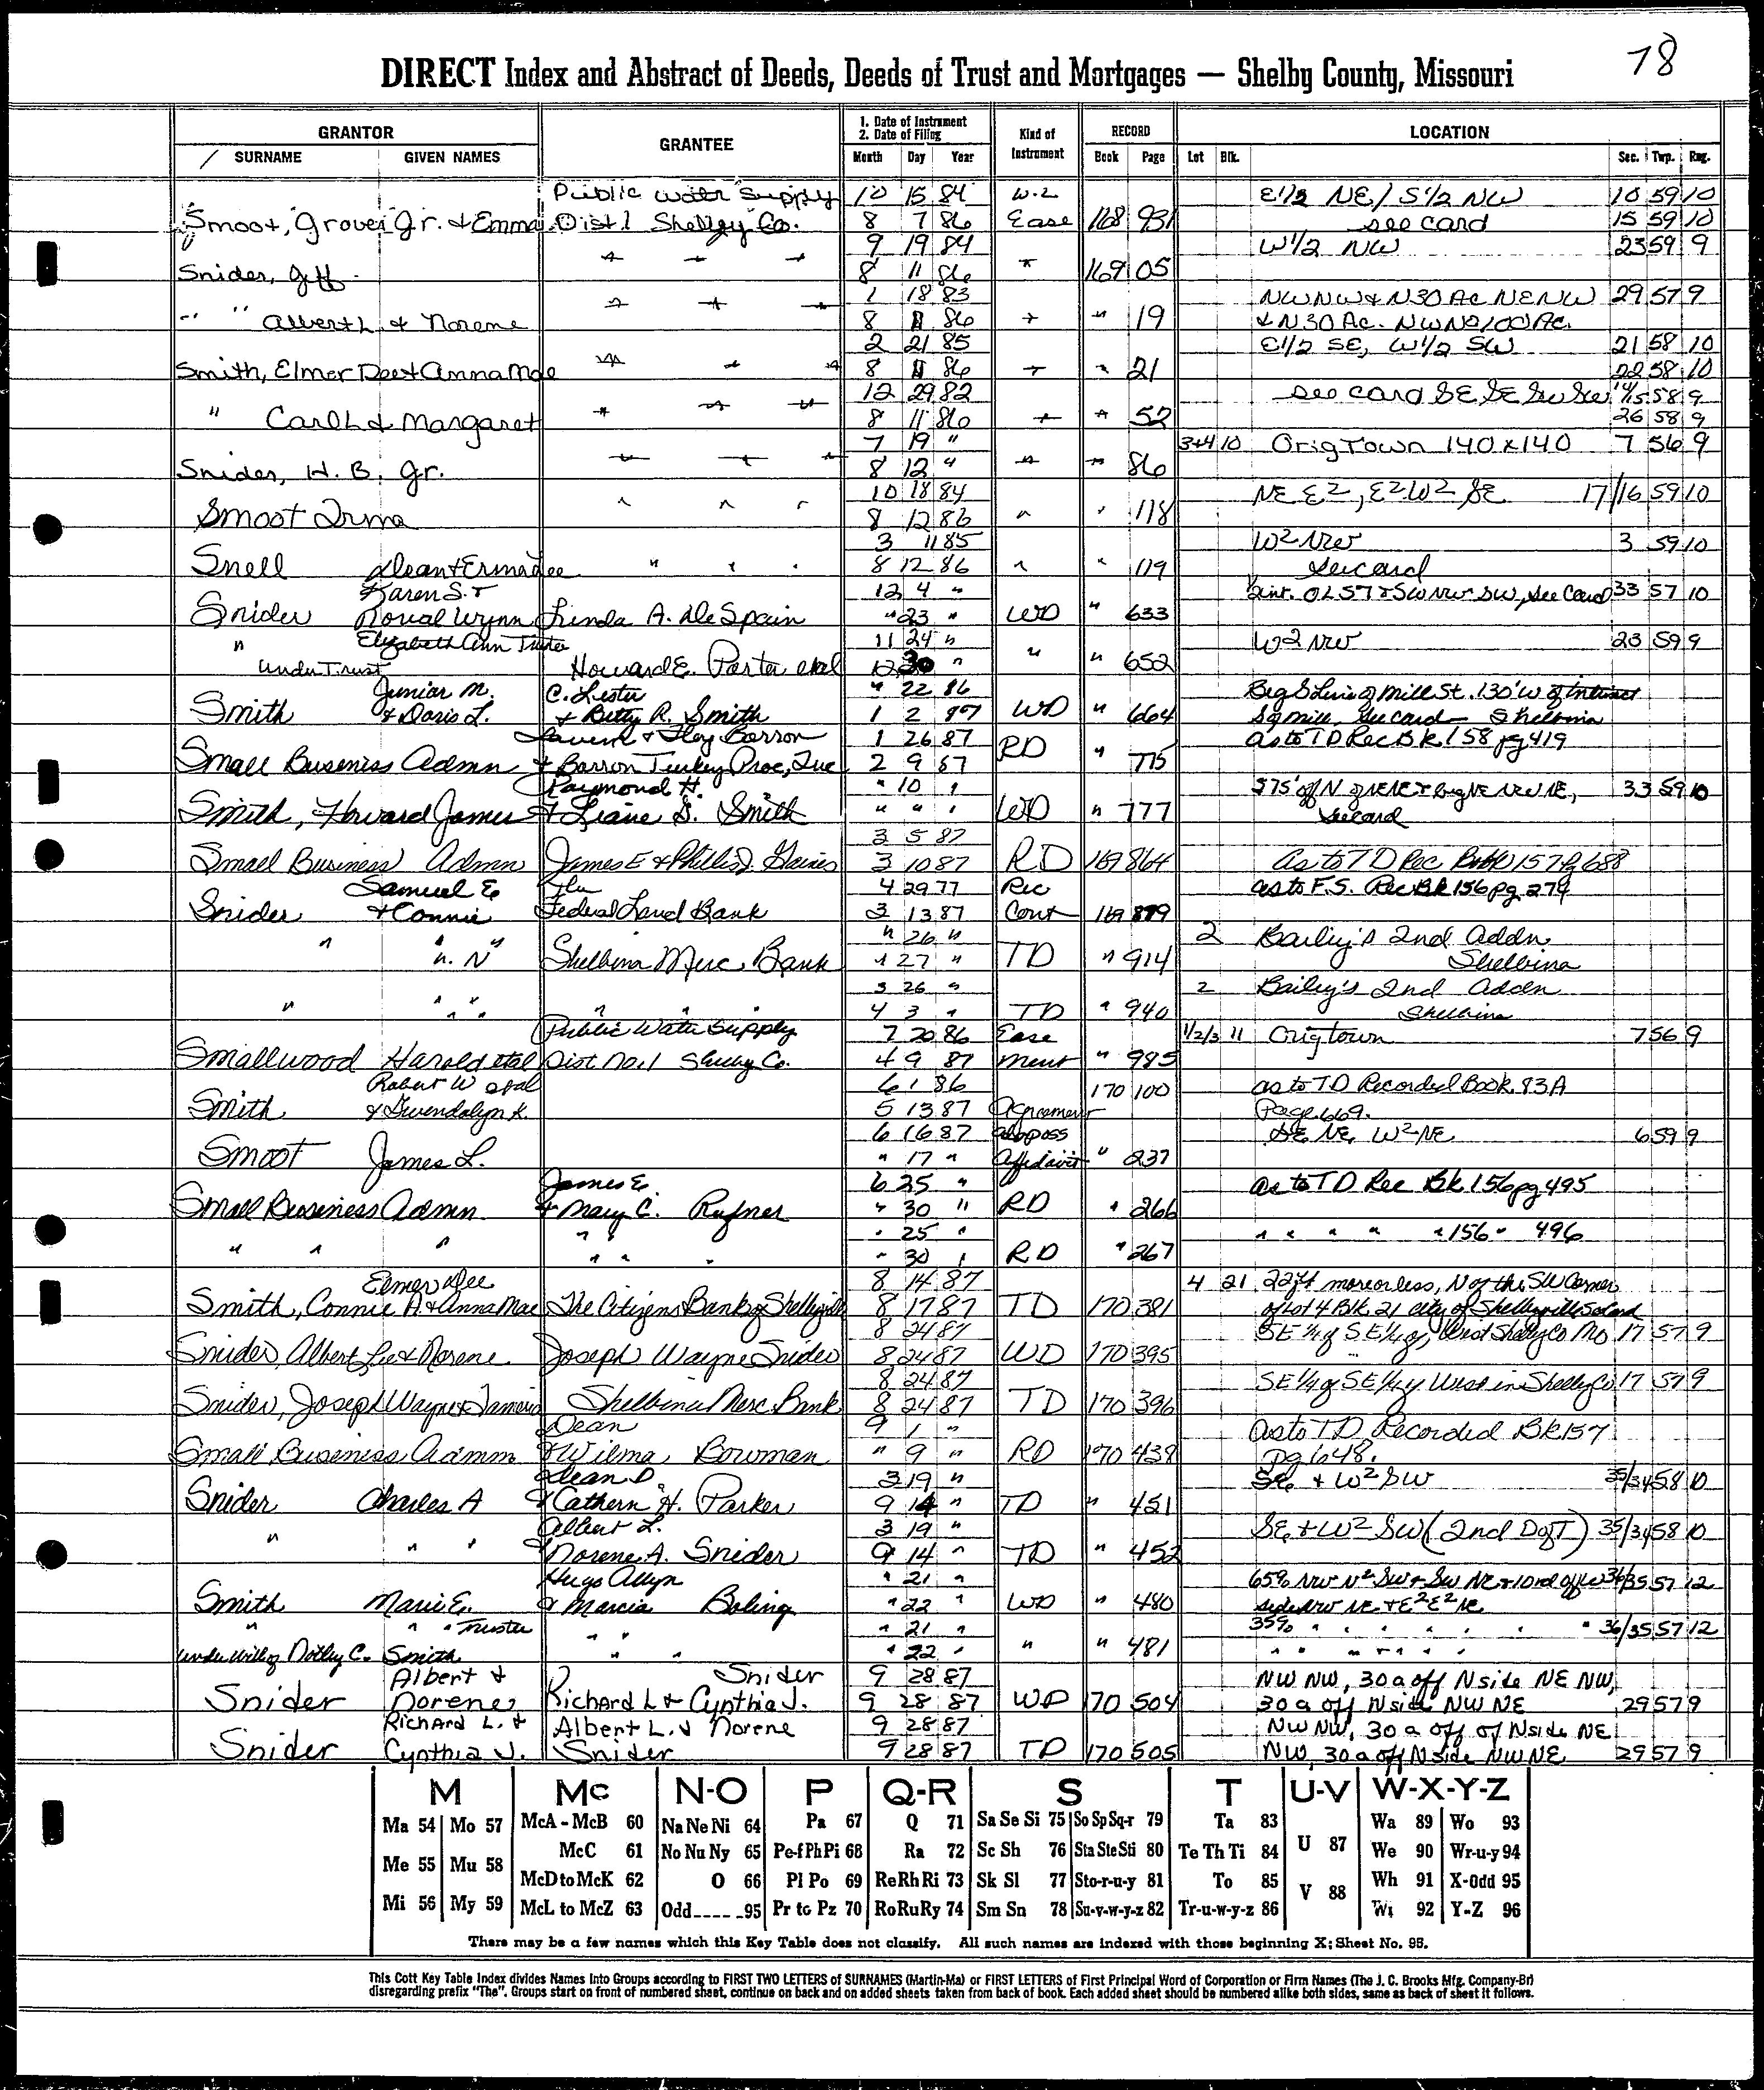 78
DIRECT Index and Abstract of Deeds, Deeds of Trust and Mortgages — Shelby County, Missouri
GRANTOR GRANTEE 1. Date of Instrument 2. Date of Filing Kind of Instrument RECORD LOCATION
SURNAME GIVEN NAMES Month Day Year Book Page Lot Blk. Sec. Twp. Rng.
Public water supply 10 15 84 W.L E1/2 NE/ S1/2 NW 10 59 10
Smoot, Grover Jr. & Emma Dist 1 Shelby Co. 8 7 86 Ease 168 931 see card 15 59 10
" " " 9 19 84 W1/2 NW 23 59 9
Snider, Jeff 8 11 86 " 169 05
" " " 1 18 83 NWNW & N30 Ac NENW 29 57 9
" " Albert L. & Norene 8 11 86 " " 19 & N30 Ac. NWNE/100 Ac.
" " " 2 21 85 E1/2 SE, W1/2 SW 21 58 10
Smith, Elmer Dee & Anna Mae 8 11 86 " " 21 22 58 10
" " " 12 29 82 see card SE, SE 58 9
" Carl L & Margaret 8 11 86 " " 52 26 58 9
" " " 7 19 " 3+4 10 Orig Town 140 x 140 7 56 9
Snider, H. B. Jr. 8 12 " " " 86
" " " 10 18 84 NE E2, E2W2 SE 17/16 59 10
Smoot Irma 8 12 86 " " 118
3 11 85 W2 NW 3 59 10
Snell Dean & Ermalee " " " 8 12 86 " " 119 See card
Karen S. & 12 4 " OL 57 & SW NW SW, See Card 33 57 10
Snider Roual Wynn Linda A. DeSpain " 23 " WD " 633
" Elizabeth Ann Trustee 11 24 " W2 NW 23 59 9
Under Trust Howard E. Porter etal 12 30 " " " 652
Junior M. C. Lester " 22 86 Beg S Line of Mill St. 130' W of
Smith & Doris L. & Betty R. Smith 1 2 87 WD " 664 See card Shelbina
Lavern & Floy Barron 1 26 87 RD as to TD Rec Bk 158 pg 419
Small Business Admn & Barron Turkey Proc, Inc 2 9 87 " 775
Raymond H. " 10 " 575' off N of NENE & beg NE NWNE, 33 59 10
Smith, Howard James & Liane S. Smith " " " WD " 777 See card
3 5 87
Small Business Admn James E & Phillis J. Gaines 3 10 87 RD 169 864 As to TD Rec Book 157 Pg 688
Samuel E The 4 29 77 Rec as to F.S. Rec Bk 156 pg 279
Snider & Connie Federal Land Bank 3 13 87 Cont 169 879
" " " " 26 " 2 Bailey's 2nd Addn
Shelbina Merc Bank " 27 " TD " 914 Shelbina
3 26 " 2 Bailey's 2nd Addn
" " " " " " 4 3 " TD " 940 Shelbina
Public Water Supply 7 20 86 Ease 1/2/3 11 Orig town 7 56 9
Smallwood Harold etal Dist No. 1 Shelby Co. 4 9 87 ment " 985
Robert W etal 6 1 86 170 100 as to TD Recorded Book 83A
Smith & Gwendolyn K. 5 13 87 Agreement Page 669.
6 16 87 SE NE, W2 NE 6 59 9
Smoot James L. " 17 " Affidavit " 237
James E. 6 25 " as to TD Rec Bk 156 pg 495
Small Business Admn & Mary C. Rufner " 30 " RD " 266
" 25 " " " " " " 156 " 496
" " " " " " " 30 " RD " 267
Elmer Dee 8 14 87 4 21 22 ft more or less, N of the SW Corner
Smith, Connie A. & Anna Mae The Citizens Bank of Shelbyville 8 17 87 TD 170 381 of Lot 4 Blk 21 city of Shelbyville
8 24 87 SE 1/4 of SE 1/4 of, West Shelby Co Mo 17 57 9
Snider, Albert Lee & Norene Joseph Wayne Snider 8 24 87 WD 170 395
8 24 87 SE 1/4 of SE 1/4 of West in Shelby Co 17 57 9
Snider, Joseph Wayne & Shelbina Merc Bank 8 24 87 TD 170 396
Dean 9 1 " As to TD Recorded BK 157
Small Business Admn & Wilma Bowman " 9 " RD 170 438 pg 648.
Dean D. 3 19 " SE & W2 SW 35/34 58 10
Snider Charles A & Cathern H. Parker 9 14 " TD " 451
Albert L. 3 19 " SE & W2 SW (2nd DofT) 35/34 58 10
" " " Norene A. Snider 9 14 " TD " 452
Hugo Allyn " 21 " 65% NW N2 SW & SW NE & 10 rd off W 36/35 57 12
Smith Marie E. & Marcia Boling " 22 " WD " 480 side NW NE & E2E2 NE
" " " Trustee " " " 21 " 35% " " " " " " 36/35 57 12
under will of Notley C. Smith " " " 22 " " " 481 " " " " " "
Albert & Snider 9 28 87 NW NW, 30 a off N side NE NW,
Snider Norene Richard L & Cynthia J. 9 28 87 WD 170 504 30 a off N side NW NE 29 57 9
Richard L. & Albert L. & Norene 9 28 87 NW NW, 30 a off of N side NE
Snider Cynthia J. Snider 9 28 87 TD 170 505 NW, 30 a off N side NW NE 29 57 9
M Mc N-O P Q-R S T U-V W-X-Y-Z
Ma 54 Mo 57 McA - McB 60 Na Ne Ni 64 Pa 67 Q 71 Sa Se Si 75 So Sp Sq-r 79 Ta 83 Wa 89 Wo 93
Me 55 Mu 58 McC 61 No Nu Ny 65 Pe-f Ph Pi 68 Ra 72 Sc Sh 76 Sta Ste Sti 80 Te Th Ti 84 U 87 We 90 Wr-u-y 94
McD to McK 62 O 66 Pl Po 69 Re Rh Ri 73 Sk Sl 77 Sto-r-u-y 81 To 85 V 88 Wh 91 X-Odd 95
Mi 56 My 59 McL to McZ 63 Odd____95 Pr to Pz 70 Ro Ru Ry 74 Sm Sn 78 Su-v-w-y-z 82 Tr-u-w-y-z 86 Wi 92 Y-Z 96
There may be a few names which this Key Table does not classify. All such names are indexed with those beginning X; Sheet No. 95.
This Cott Key Table Index divides Names into Groups according to FIRST TWO LETTERS of SURNAMES (Martin-Ma) or FIRST LETTERS of First Principal Word of Corporation or Firm Names (The J. C. Brooks Mfg. Company-Br)
disregarding prefix "The". Groups start on front of numbered sheet, continue on back and on added sheets taken from back of book. Each added sheet should be numbered alike both sides, same as back of sheet it follows.